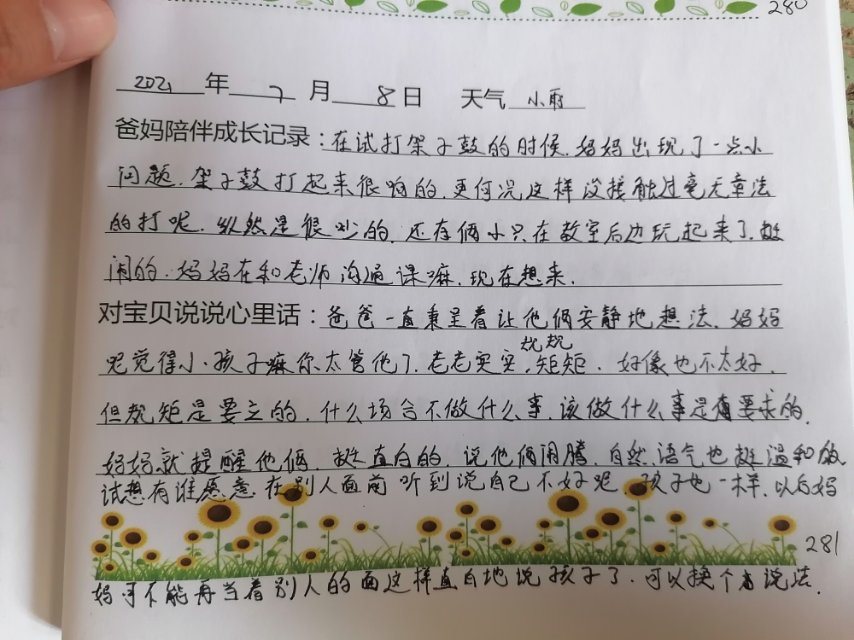 280
2021 年 7 月 8 日 天气 小雨
爸妈陪伴成长记录：在试打架子鼓的时候，妈妈出现了一点小
问题，架子鼓打起来很响的，更何况这样没接触过毫无章法
的打呢，纵然是很吵的，还有俩小只在教室后边玩起来了，挺
闹的，妈妈在和老师沟通课嘛，现在想来，
对宝贝说说心里话：爸爸一直秉呈着让他俩安静地想法，妈妈
呢觉得小孩子嘛你太管他了，老老实实，规规矩矩，好像也不太好，
但规矩是要立的，什么场合不做什么事，该做什么事是有要求的，
妈妈就提醒他俩，挺直白的，说他俩闹腾，自然语气也挺温和的
试想有谁愿意在别人面前听到说自己不好呢，孩子也一样，以后妈
281
妈可不能再当着别人的面这样直白地说孩子了，可以换个说法.